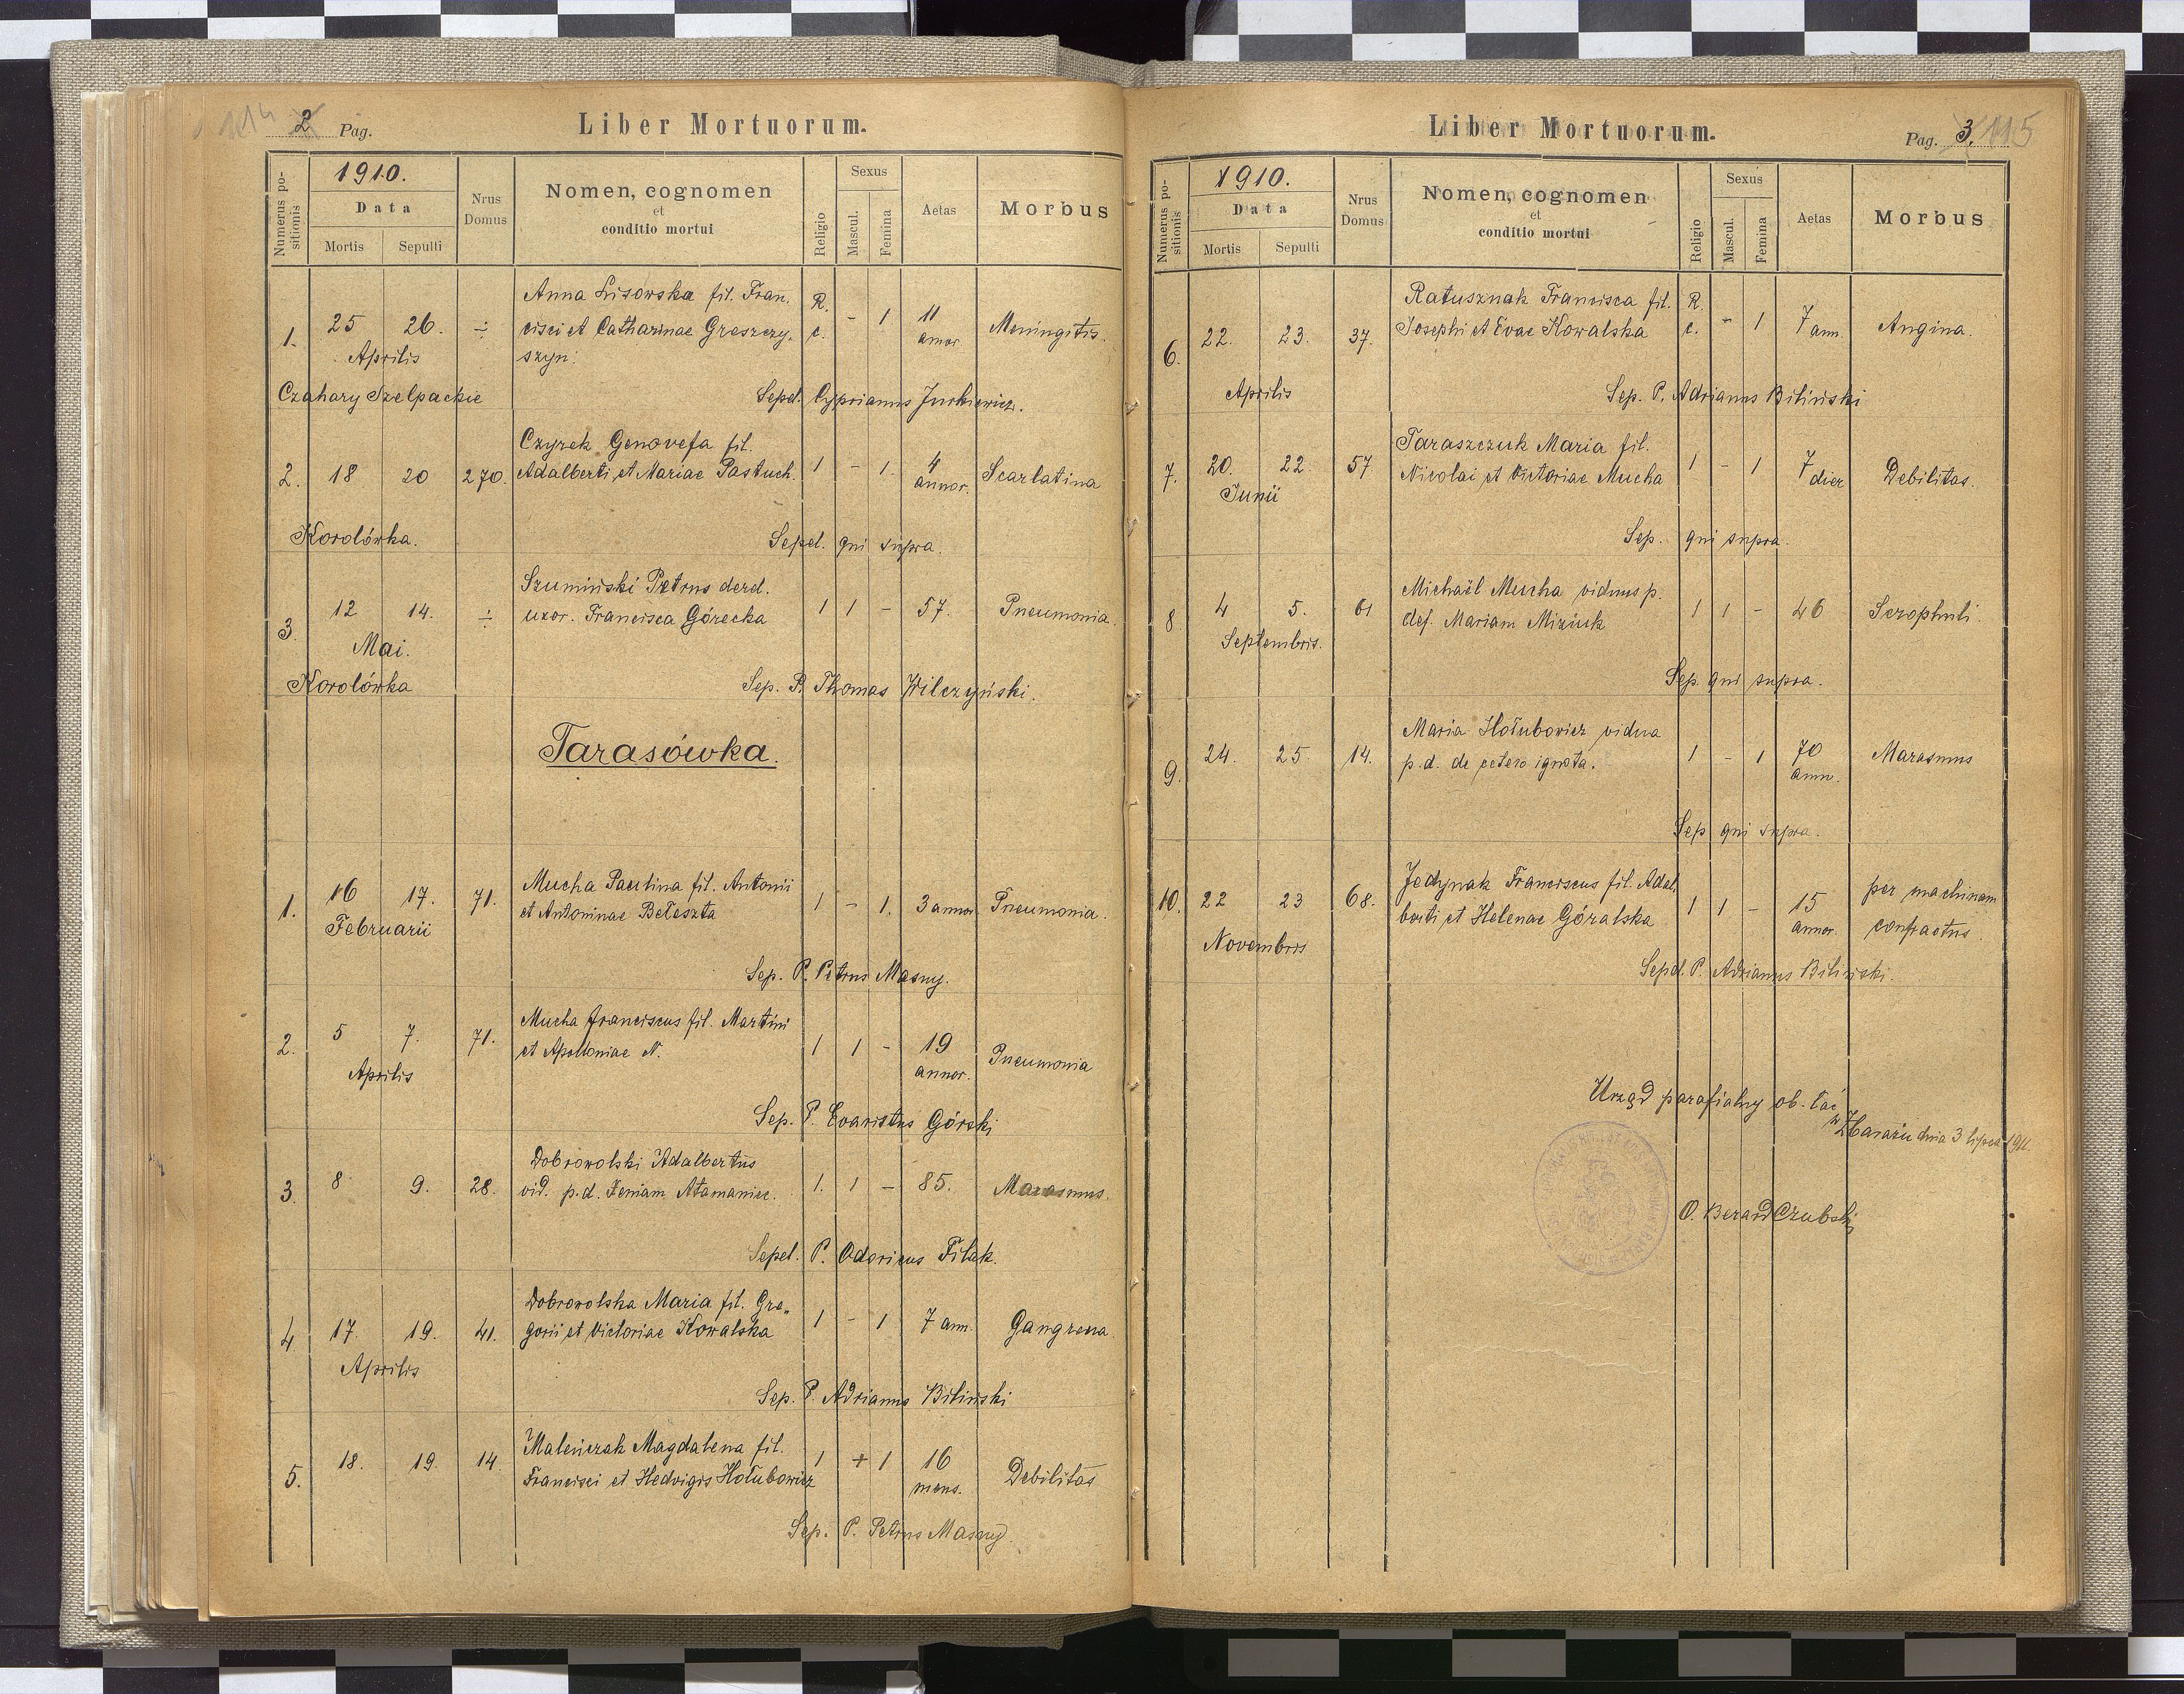 114 2 Pag.
Liber Mortuorum.
Numerus po-
sitionis
1910.
Data
Mortis Sepulti
Nrus
Domus
Nomen, cognomen
et
conditio mortui
Religio
Sexus
Mascul.
Femina
Aetas
Morbus
Anna Lisowska fil. Fran.
1. 25 26. ÷ cisci et Catharinae Graszczy. R. c. - 1 11 annor. Meningitis.
Aprilis szyn:
Czahary Szelpackie Sepel. Cyprianus Jurkiewicz.
Czyrek Genovefa fil.
2. 18 20 270. Adalberti et Mariae Pastuch. 1 - 1. 4 annor. Scarlatina
Korolówka. Sepel. qui supra.
Szumiński Petrus derel.
3. 12 14. ÷ uxor. Francisca Górecka 1 1 - 57. Pneumonia.
Mai.
Korolówka Sep. P. Thomas Wilczyński.
Tarasówka.
Mucha Paulina fil. Antonii
1. 16 17. 71. et Antoninae Bełeszta 1 - 1. 3 annor. Pneumonia.
Februarii
Sep. P. Petrus Masny.
Mucha Franciscus fil. Martini
2. 5 7. 71. et Apolloniae N. 1 1 - 19 annor. Pneumonia
Aprilis
Sep. P. Evaristus Górski
Dobrowolski Adalbertus
3. 8 9. 28. vid. p. d. Xeniam Atamaniec. 1. 1 - 85. Marasmus.
Sepel. P. Odoricus Filak.
Dobrowolska Maria fil. Gre„
4. 17. 19. 41. gorii et Victoriae Kowalska 1 - 1 7 ann. Gangrena
Aprilis
Sep. P. Adrianus Biliński
Maleńczak Magdalena fil.
5. 18. 19. 14. Francisci et Hedvigis Hołubowicz 1 + 1 16 mens. Debilitas
Sep. P. Petrus Masny.
Liber Mortuorum.
Pag. 3. 115
Numerus po-
sitionis
1910.
Data
Mortis Sepulti
Nrus
Domus
Nomen, cognomen
et
conditio mortui
Religio
Sexus
Mascul.
Femina
Aetas
Morbus
Ratusznak Francisca fil.
6. 22. 23. 37. Josephi et Evae Kowalska R. c. - 1 7 ann. Angina.
Aprilis Sep. P. Adrianus Biliński
Taraszczuk Maria fil.
7. 20. 22. 57 Nicolai et Victoriae Mucha 1 - 1 7 dier Debilitas.
Junii
Sep. qui supra.
Michaël Mucha viduus p.
8 4 5. 61 def. Mariam Miziuk 1 1 - 46 Scrophuli.
Septembris.
Sep. qui supra.
Maria Hołubowicz vidua
9. 24. 25. 14. p. d. de cetero ignota. 1 - 1 70 ann. Marasmus
Sep qui supra.
Jedynak Franciscus fil. Adal.
10. 22 23 68. berti et Helenae Góralska 1 1 - 15 annor. per machinam confractus
Novembris
Sepel. P. Adrianus Biliński.
Urząd parafialny ob. łać
w Zbarażu dnia 3 lipca 1911.
O. Berard Czubski